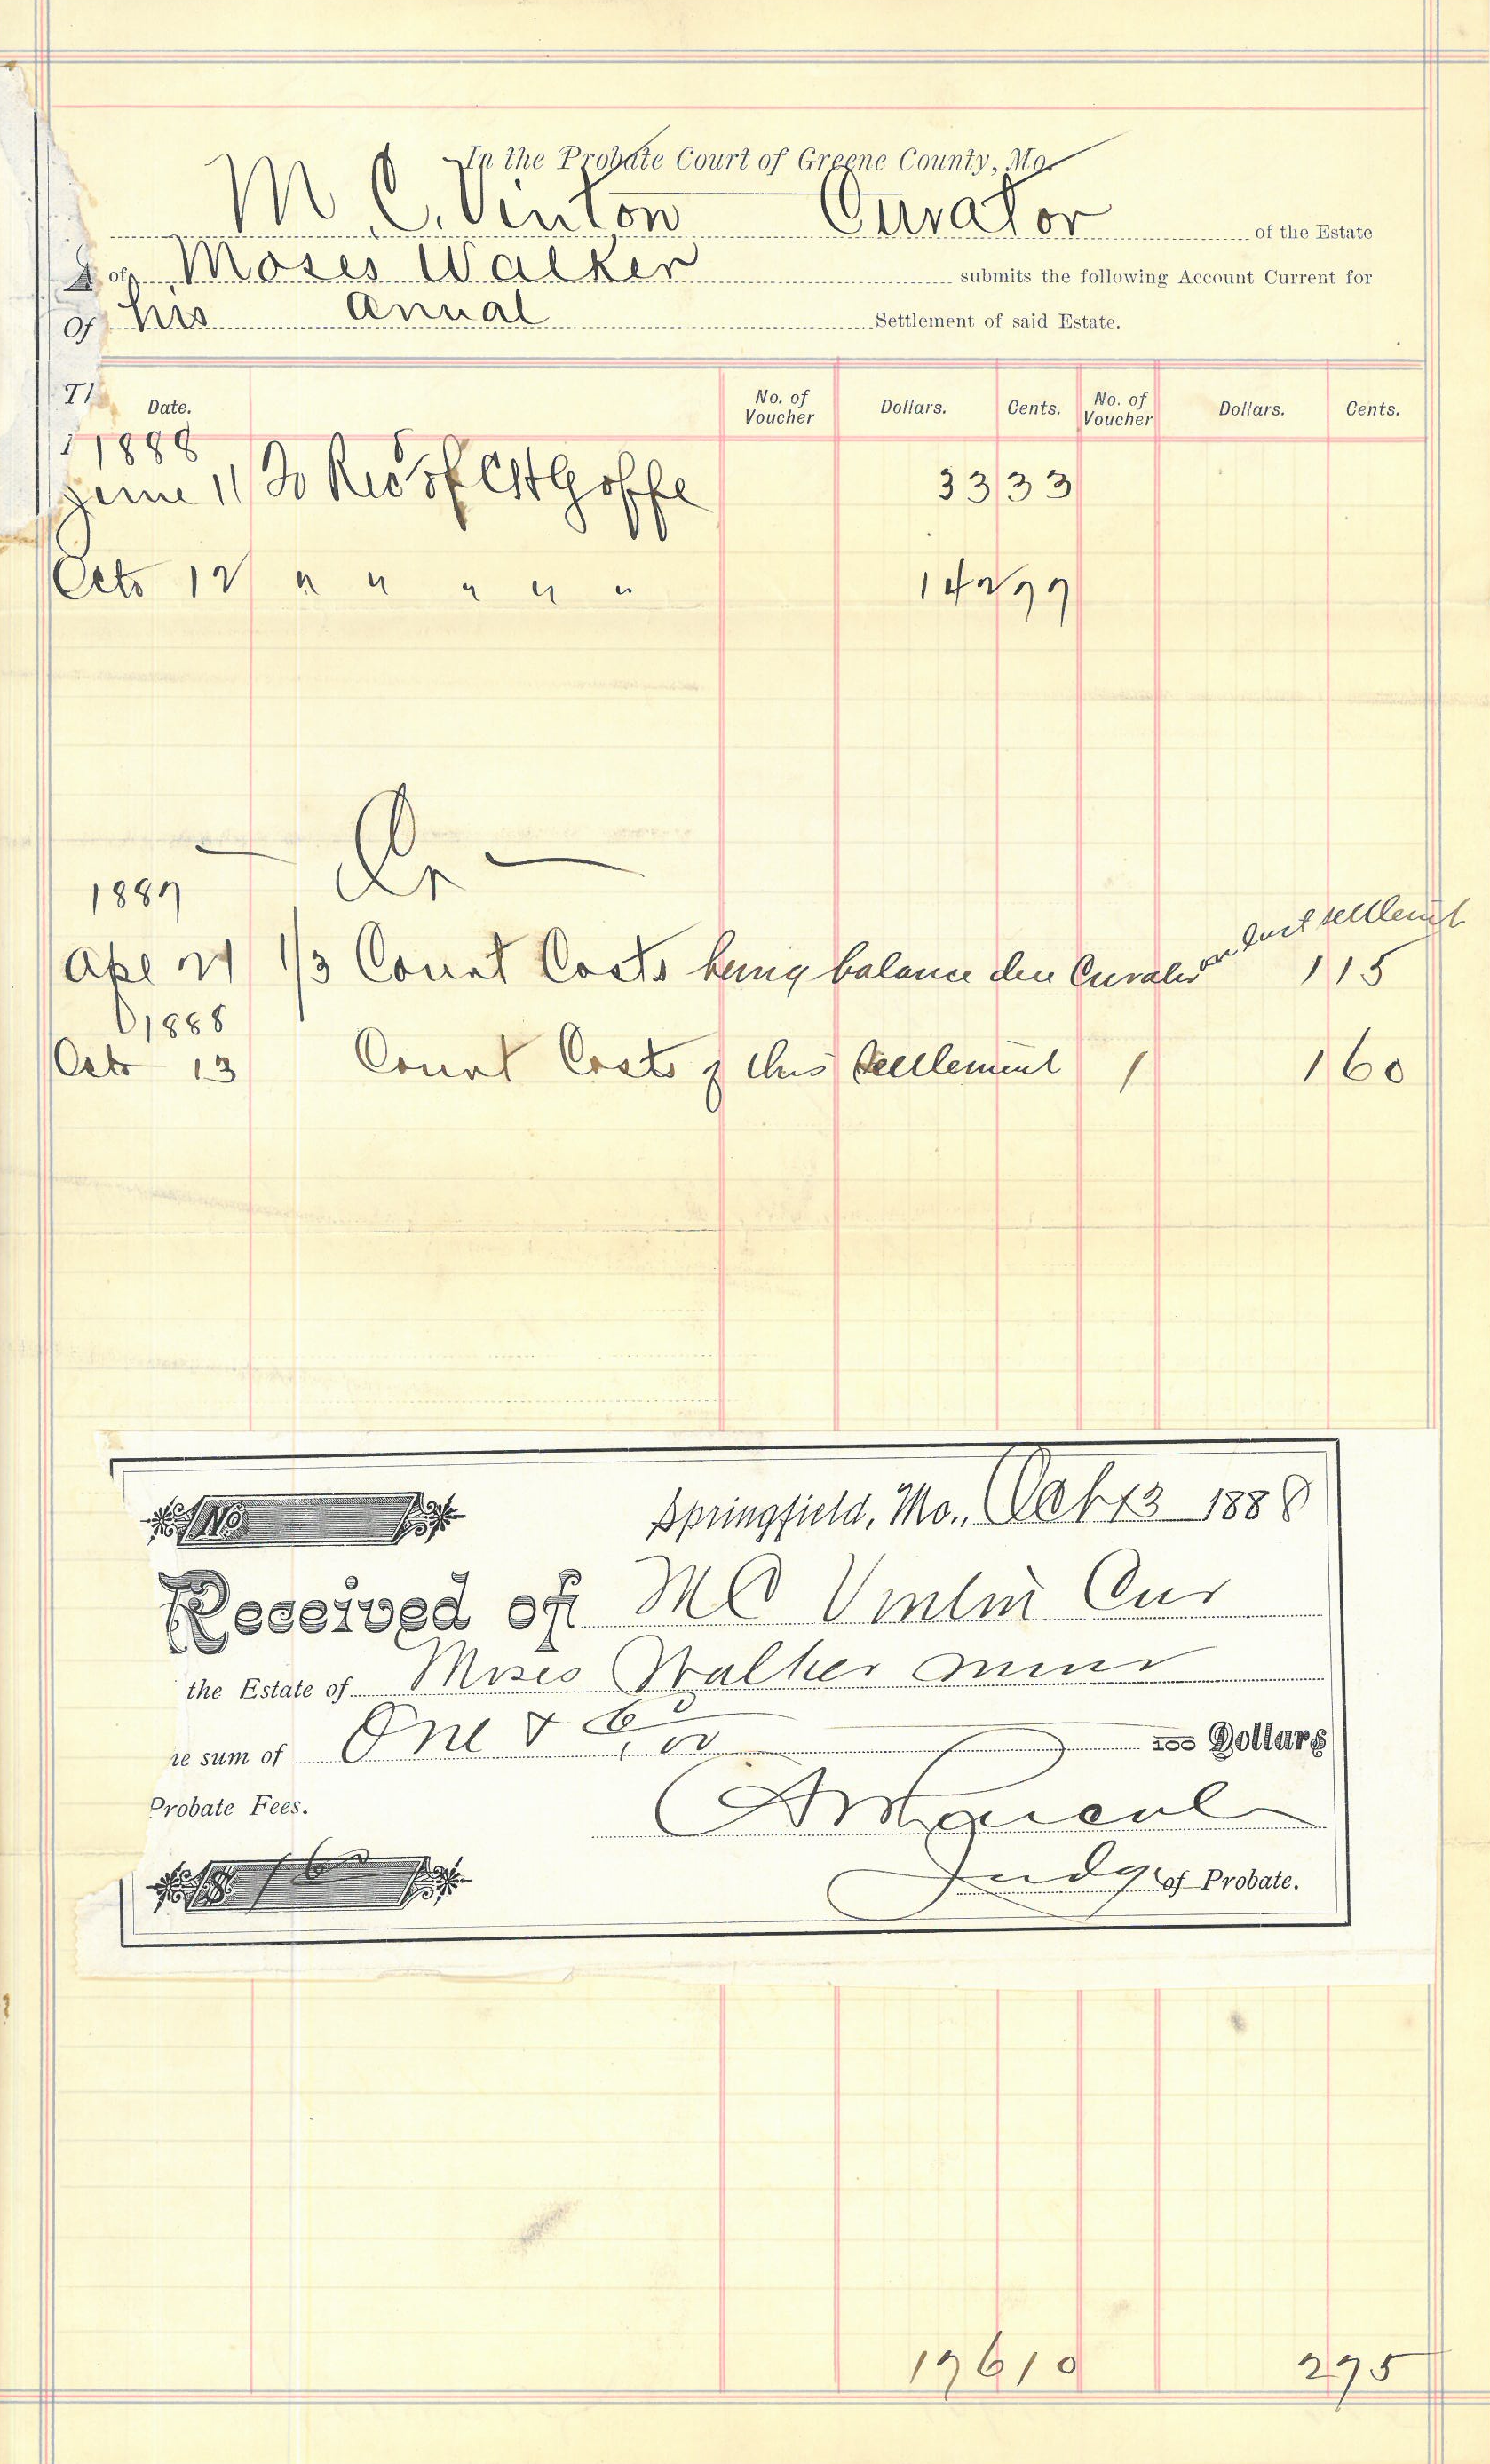 In the Probate Court of Greene County, Mo.
M. C. Vinton Curator of the Estate
of Moses Walker submits the following Account Current for
Of his Anual Settlement of said Estate.
Date. No. of Voucher Dollars. Cents. No. of Voucher Dollars. Cents.
1888
June 11 To Recd of CH Goffe 33 33
Octo 12 " " " " " 142 77
Cr
1887
Apl 21 1/3 Court Costs being balance due Curator on last settlement 1 15
1888
Octo 13 Court Costs of this Settlement 1 1 60
No
Springfield, Mo., Oct 13 1888
Received of M C Vinton Cur
the Estate of Moses Walker minor
sum of One & 60/100 100 Dollars
Probate Fees.
$ 1 60
Judge of Probate.
176 10 2 75